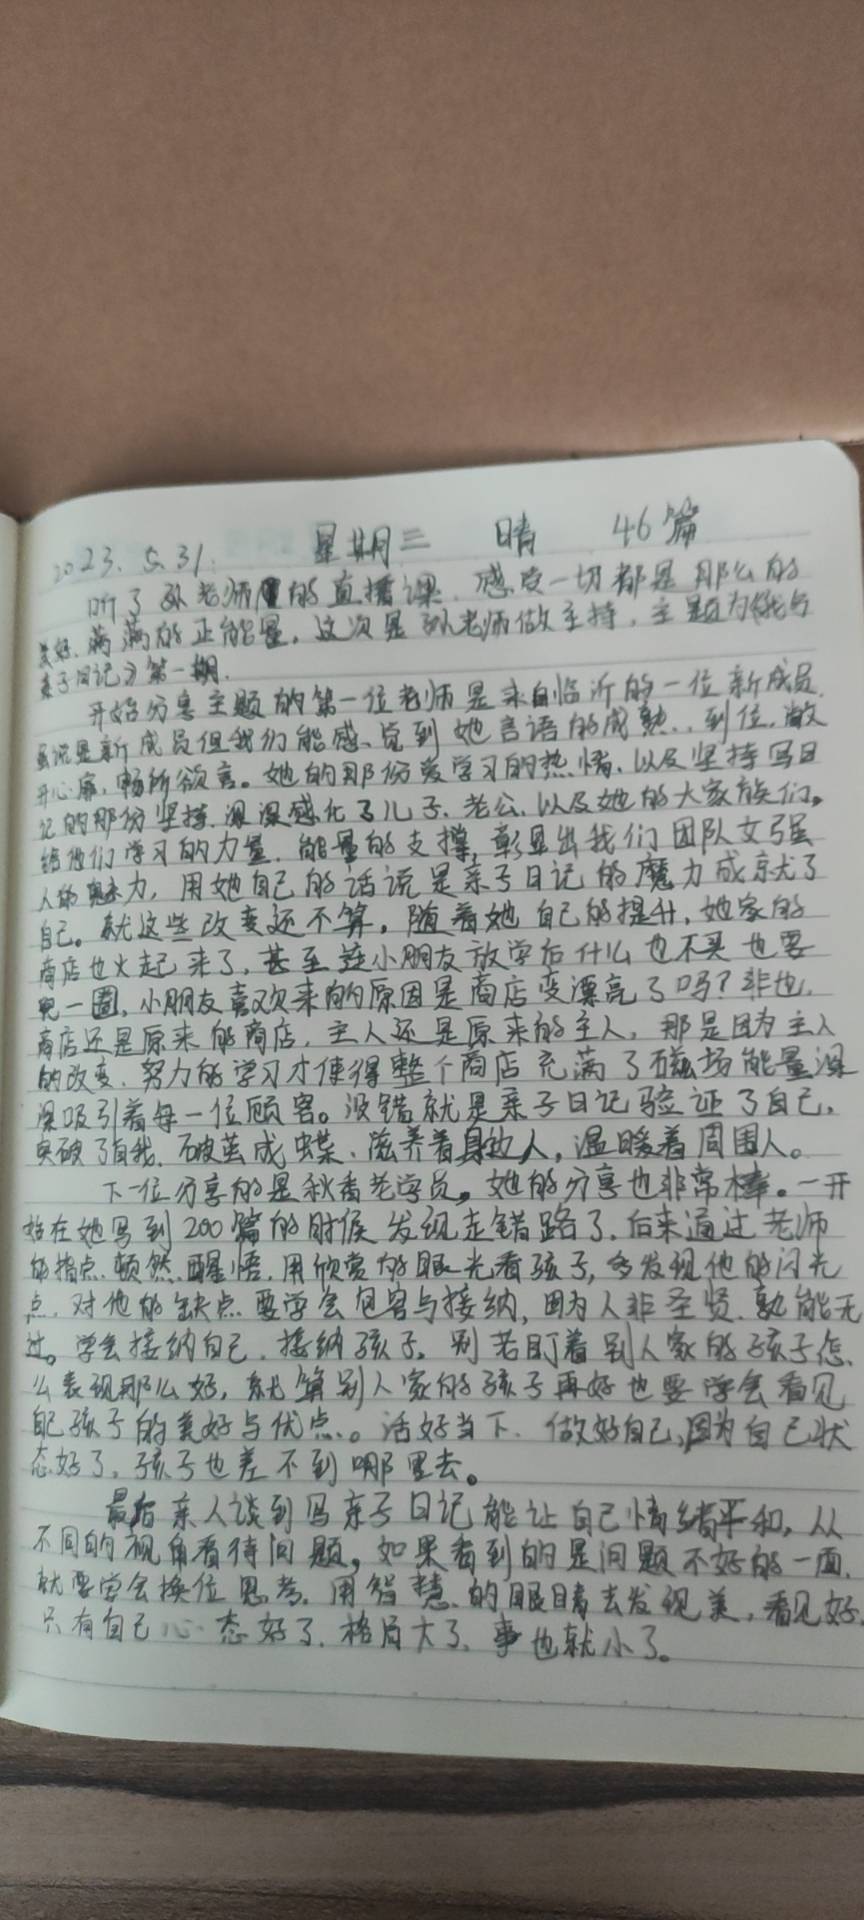 2023.5.31. 星期三 晴 46篇
听了孙老师的直播课，感发一切都是那么的
美好，满满的正能量，这次是孙老师做主持，主题为《我与
亲子日记》第一期.
开始分享主题的第一位老师是来自临沂的一位新成员，
虽说是新成员但我们能感觉到她言语的成熟、到位，敞
开心扉，畅所欲言。她的那份爱学习的热情，以及坚持写日
记的那份坚持，深深感化了儿子、老公，以及她的大家族们。
给他们学习的力量，能量的支撑，彰显出我们团队女强
人的魅力，用她自己的话说是亲子日记的魔力成就了
自己。就这些改变还不算，随着她自己的提升，她家的
商店也火起来了，甚至连小朋友放学后什么也不买也要
晃一圈，小朋友喜欢来的原因是商店变漂亮了吗？非也，
商店还是原来的商店，主人还是原来的主人，那是因为主人
的改变，努力的学习才使得整个商店充满了磁场能量深
深吸引着每一位顾客。没错就是亲子日记验证了自己，
突破了自我，破茧成蝶，滋养着身边人，温暖着周围人。
下一位分享的是秋香花学员，她的分享也非常棒。一开
始在她写到200篇的时候发现走错路了，后来通过老师
的指点，顿然醒悟，用欣赏的眼光看孩子，多发现他的闪光
点，对他的缺点要学会包容与接纳，因为人非圣贤，孰能无
过。学会接纳自己，接纳孩子。别老盯着别人家的孩子怎
么表现那么好，就算别人家的孩子再好也要学会看见
自己孩子的美好与优点。活好当下，做好自己，因为自己状
态好了，孩子也差不到哪里去。
最后亲人谈到写亲子日记能让自己情绪平和，从
不同的视角看待问题，如果看到的是问题不好的一面，
就要学会换位思考，用智慧的眼睛去发现美，看见好，
只有自己心态好了，格局大了，事也就小了。